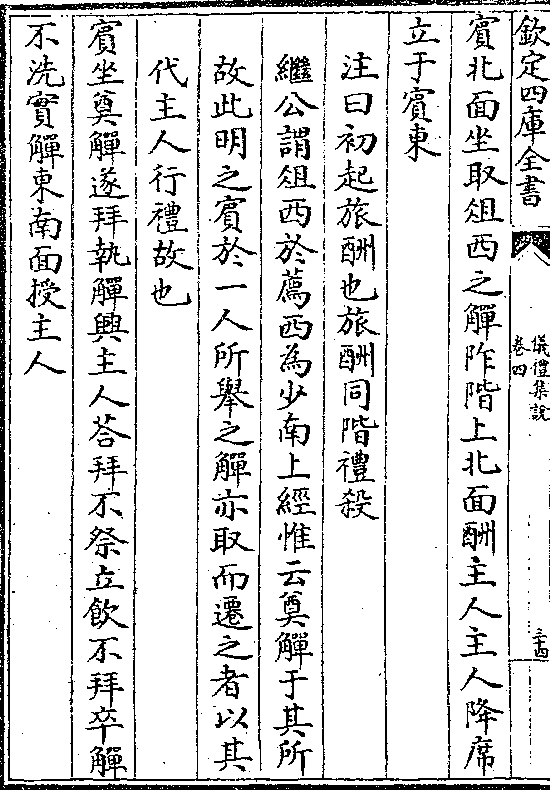 欽定四庫全書
儀禮集說
卷四
三十四
賓北面坐取俎西之觶阼階上北面酬主人主人降席
立于賓東
注曰初起旅酬也旅酬同階禮殺
繼公謂俎西於薦西為少南上經惟云奠觶于其所
故此明之賓於一人所舉之觶亦取而遷之者以其
代主人行禮故也
賓坐奠觶遂拜執觶興主人荅拜不祭立飲不拜卒觶
不洗實觶東南面授主人